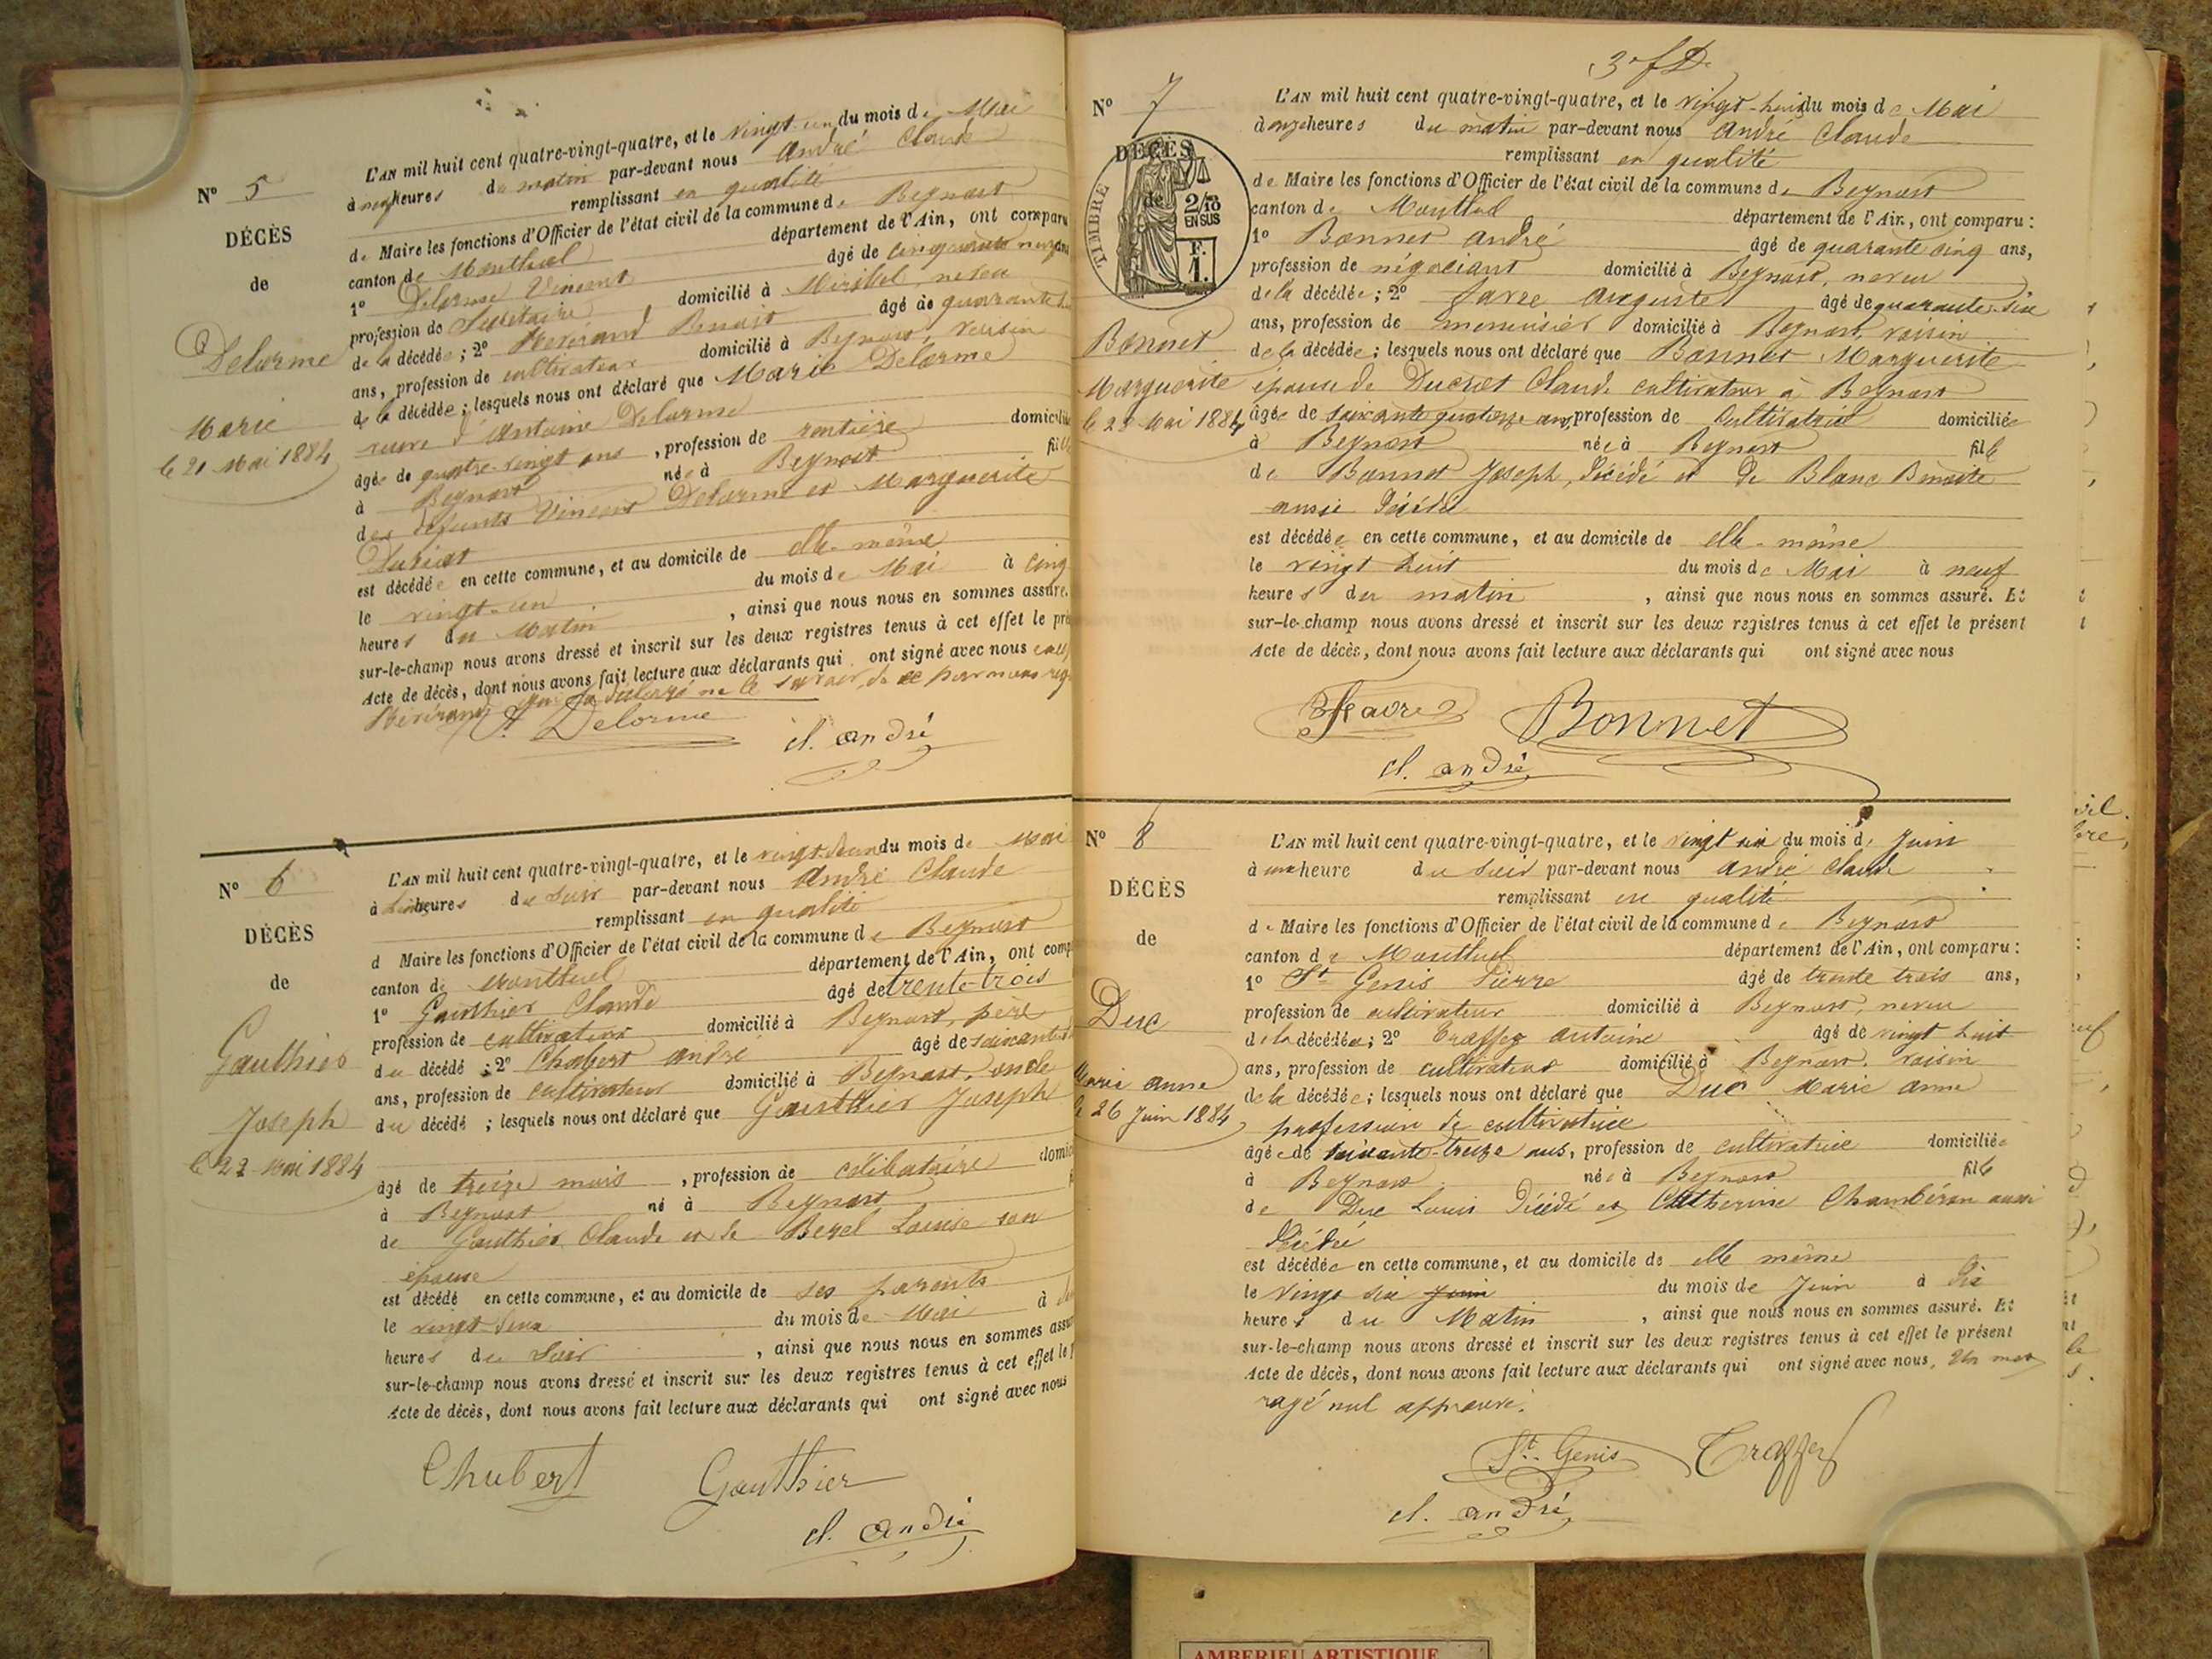 L'AN mil huit cent quatre-vingt-quatre, et le vingt-un du mois de Mai
à neuf heures du matin par-devant nous André Claude
remplissant en qualité
de Maire les fonctions d'Officier de l'état civil de la commune de Beynost
canton de Montluel département de l'Ain, ont comparu
1º Delorme Vincent âgé de cinquante neuf ans
profession de Secrétaire domicilié à Miribel, neveu
de la décédée ; 2º Benoit âgé de quarante
ans, profession de cultivateur domicilié à Beynost, voisin
de la décédée ; lesquels nous ont déclaré que Marie Delorme
veuve d'Antoine Delorme
âgée de quatre-vingt ans, profession de rentière domicilié
à Beynost née à Beynost fille
des défunts Vincent Delorme et Marguerite
est décédée en cette commune, et au domicile de elle-même
le vingt-un du mois de Mai à cinq
heures du Matin, ainsi que nous nous en sommes assuré.
sur-le-champ nous avons dressé et inscrit sur les deux registres tenus à cet effet le pré
Acte de décès, dont nous avons fait lecture aux déclarants qui ont signé avec nous
Nº 5
DÉCÈS
de
Delorme
Marie
le 21 Mai 1884
Delorme
cl. andré
L'AN mil huit cent quatre-vingt-quatre, et le vingt-deux du mois de Mai
à heures du soir par-devant nous André Claude
remplissant en qualité
d Maire les fonctions d'Officier de l'état civil de la commune de Beynost
canton de Montluel département de l'Ain, ont comp
1º Gauthier Claude âgé de trente-trois
profession de cultivateur domicilié à Beynost, père
du décédé ; 2º Chabert André âgé de soixante
ans, profession de cultivateur domicilié à Beynost, oncle
du décédé ; lesquels nous ont déclaré que Gauthier Joseph
âgé de treize mois, profession de célibataire domici
à Beynost né à Beynost
de Gauthier Claude et de Louise son
épouse
est décédé en cette commune, et au domicile de ses parents
le vingt-deux du mois de Mai à
heures du soir, ainsi que nous nous en sommes assu
sur-le-champ nous avons dressé et inscrit sur les deux registres tenus à cet effet le p
Acte de décès, dont nous avons fait lecture aux déclarants qui ont signé avec nous
Nº 6
DÉCÈS
de
Gauthier
Joseph
le 22 Mai 1884
Chabert
Gauthier
cl. andré
Nº 7
L'AN mil huit cent quatre-vingt-quatre, et le vingt-huit du mois de Mai
à onze heures du matin par-devant nous André Claude
remplissant en qualité
de Maire les fonctions d'Officier de l'état civil de la commune de Beynost
canton de Montluel département de l'Ain, ont comparu :
1º Bonnet André âgé de quarante cinq ans,
profession de négociant domicilié à Beynost, neveu
de la décédée ; 2º Favre Auguste âgé de quarante-six
ans, profession de menuisier domicilié à Beynost, voisin
de la décédée ; lesquels nous ont déclaré que Bonnet Marguerite
épouse de Ducret Claude cultivateur à Beynost
âgée de soixante quatorze ans, profession de Cultivatrice domiciliée
à Beynost née à Beynost fille
de Bonnet Joseph, décédé et de Blanc Benoite
aussi décédée
est décédée en cette commune, et au domicile de elle-même
le vingt huit du mois de Mai à neuf
heures du matin, ainsi que nous nous en sommes assuré. Et
sur-le-champ nous avons dressé et inscrit sur les deux registres tenus à cet effet le présent
Acte de décès, dont nous avons fait lecture aux déclarants qui ont signé avec nous
DÉCÈS
de
TIMBRE
2/10
EN SUS
F.
1.
Bonnet
Marguerite
le 28 Mai 1884
Favre
Bonnet
cl. andré
Nº 8
L'AN mil huit cent quatre-vingt-quatre, et le vingt six du mois de Juin
à une heure du soir par-devant nous André Claude
remplissant en qualité
de Maire les fonctions d'Officier de l'état civil de la commune de Beynost
canton de Montluel département de l'Ain, ont comparu :
1º St Genis Pierre âgé de trente trois ans,
profession de cultivateur domicilié à Beynost, neveu
de la décédée ; 2º Antoine âgé de vingt huit
ans, profession de cultivateur domicilié à Beynost, voisin
de la décédée ; lesquels nous ont déclaré que Duc Marie Anne
profession de cultivatrice
âgée de soixante-treize ans, profession de cultivatrice domiciliée
à Beynost née à Beynost fille
de Duc Louis décédé et Catherine aussi
décédée
est décédée en cette commune, et au domicile de elle même
le vingt six Juin du mois de Juin à dix
heures du Matin, ainsi que nous nous en sommes assuré. Et
sur-le-champ nous avons dressé et inscrit sur les deux registres tenus à cet effet le présent
Acte de décès, dont nous avons fait lecture aux déclarants qui ont signé avec nous, Un mot
rayé nul approuvé.
DÉCÈS
de
Duc
Marie Anne
le 26 Juin 1884
St. Genis
cl. andré
AMBERIEU ARTISTIQUE